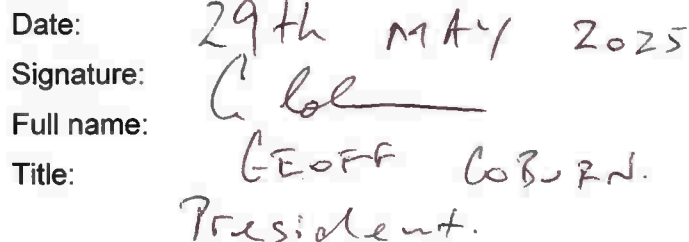 Date: 29th MAY 2025
Signature:
Full name: GEOFF COBURN.
Title: President.